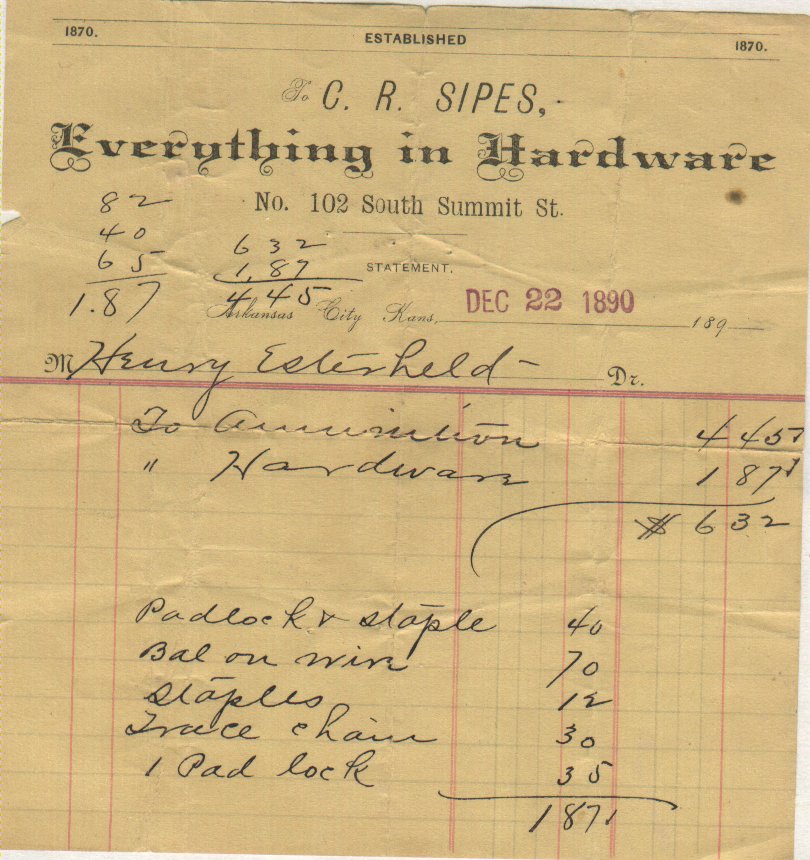 1870. ESTABLISHED 1870.
To C. R. SIPES,
Everything in Hardware
No. 102 South Summit St.
82
40
65
1.87
632
1.87
4 45
STATEMENT.
Arkansas City Kans, DEC 22 1890 189
M Henry Esterheld Dr.
To Ammunition 4 45
" Hardware 1 87
$ 6 32
Padlock & staple 40
Bal on wire 70
Staples 12
Trace chain 30
1 Pad lock 35
1 87